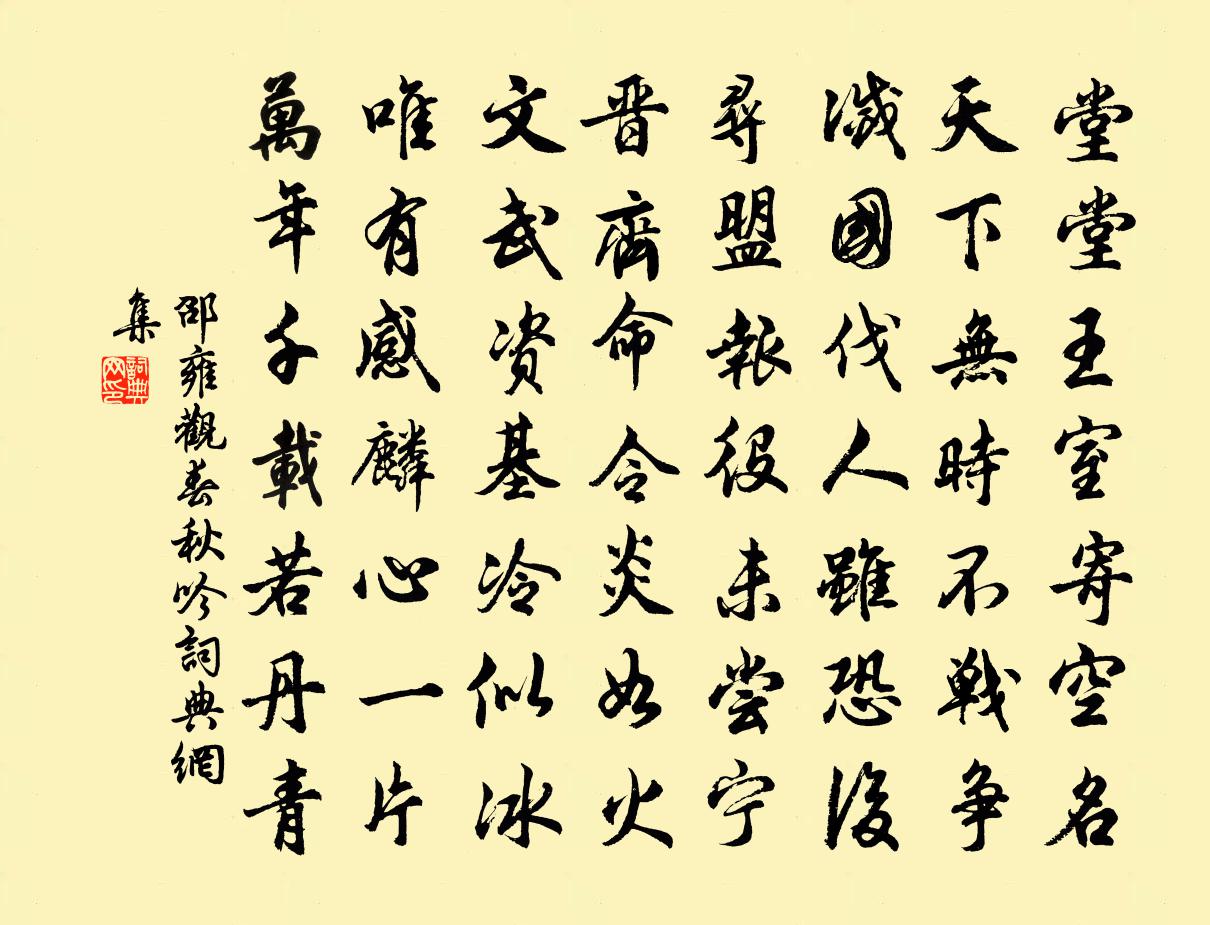 堂堂王室寄空名
天下無時不戰爭
滅國伐人雖恐後
尋盟報役未嘗宁
晋齊命令炎如火
文武資基冷似冰
唯有感麟心一片
萬年千載若丹青
邵雍觀春秋吟詞典網
集
詞典
网印